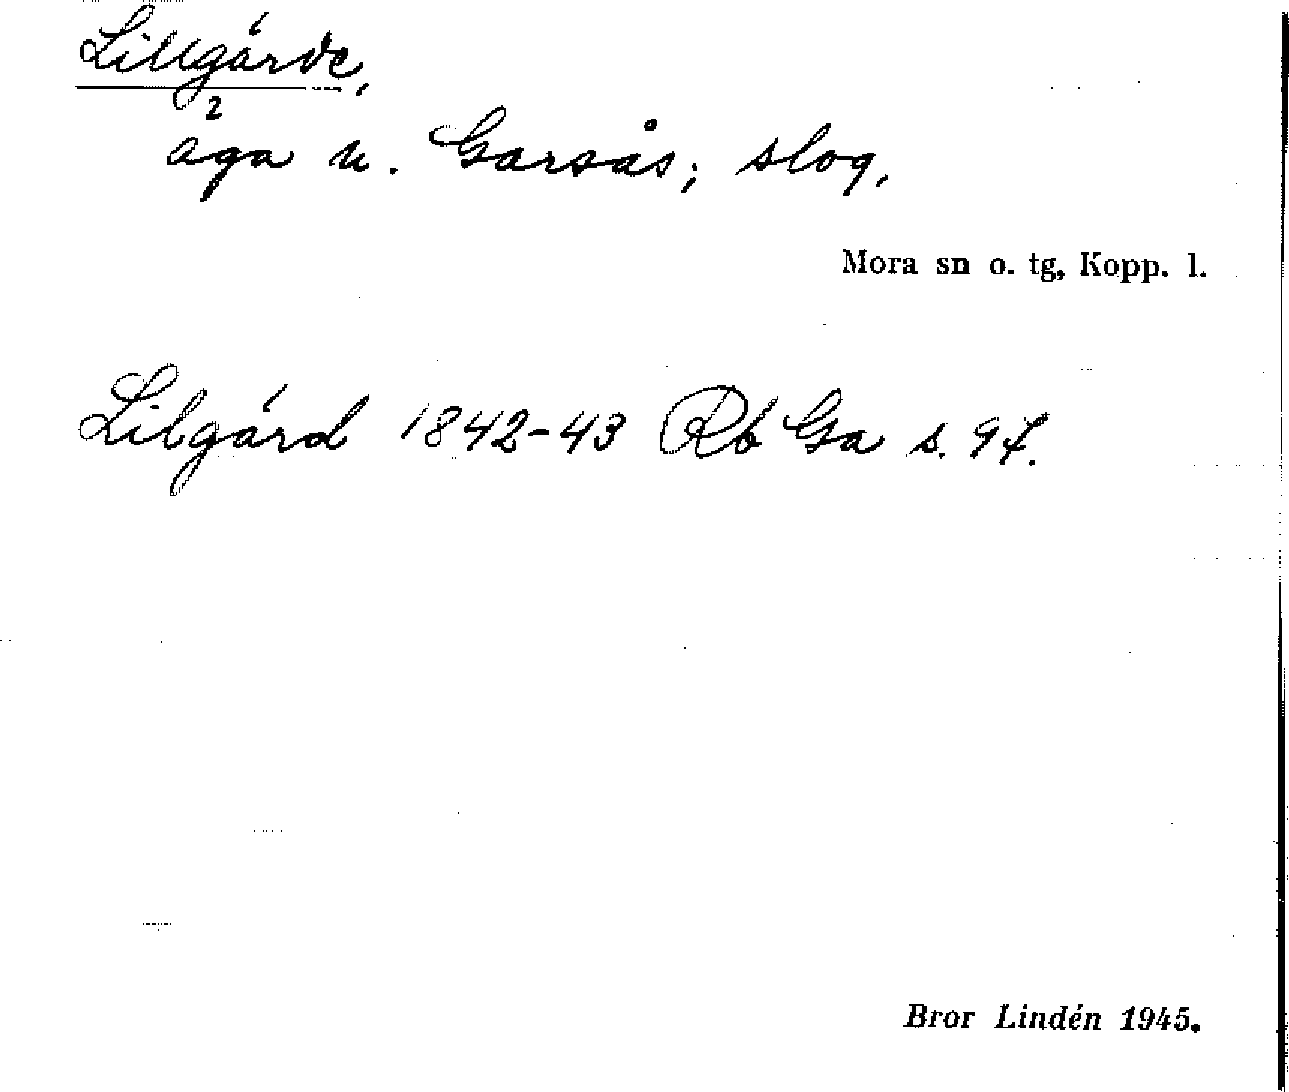 Lillgárde,
äga u. Garsås; slog.
Mora sn o. tg, Kopp. l.
Lilgárd 1842-43 Rb Ga s. 97.
Bror Lindén 1945.